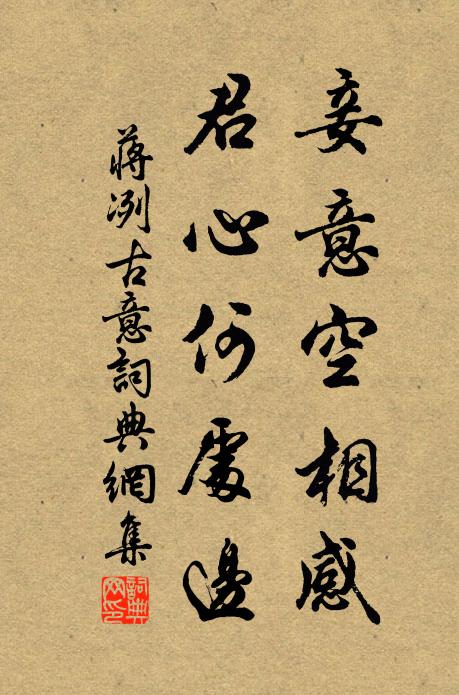 妾意空相感
君心何處邊
蔣冽古意詞典網集
詞典網印